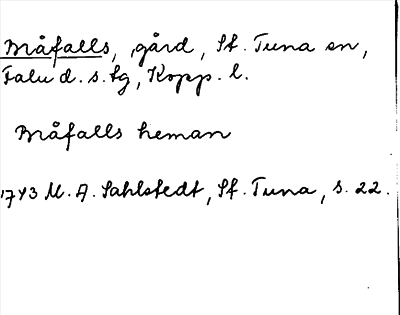 Bråfalls, gård, St. Tuna sn,
Falu d. s. fg, Kopp. l.
Bråfalls heman
1743 U. A. Sahlstedt, St. Tuna, s. 22.